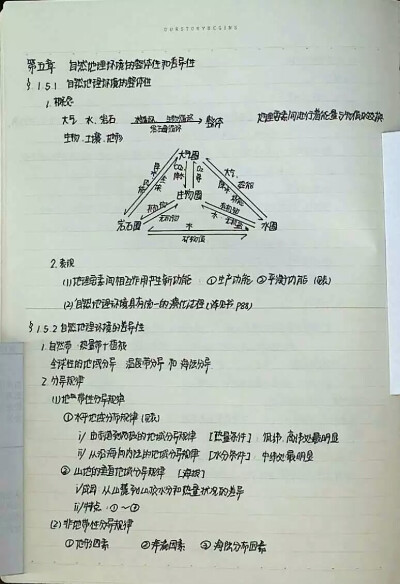 第五章 自然地理环境的整体性和差异性
§ 1.5.1 自然地理环境的整体性
1. 概念
大气 水 岩石 水循环 生物循环 整体 地理要素间进行着能量与物质的交换
生物 土壤 地形 岩石圈循环
大气圈
大气
CO₂ O₂
降水
生物圈
岩石圈 水 水圈
矿物质
2. 表现
(1) 地理要素间相互作用产生新功能 ①生产功能 ②平衡功能
(2) 自然地理环境具有统一的演化过程 (详见书 P88)
§ 1.5.2 自然地理环境的差异性
1. 自然带:热量带+植被
全球性的地域分异 温度带分异 和 海陆分异
2. 分异规律
(1) 地带性分异规律
① 水平地域分布规律
i/ 由赤道到两极的地域分异规律 [热量条件] 低纬、高纬处最明显
ii/ 从沿海向内陆的地域分异规律 [水分条件] 中纬处最明显
② 山地的垂直地域分异规律 [海拔]
i/ 成因:从山麓到山顶水分和热量状况的差异
ii/ 特点:①~③
(2) 非地带性分异规律
① 地形因素 ② 洋流因素 ③ 海陆分布因素